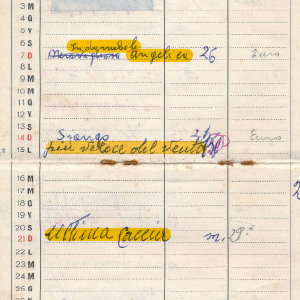 3 M
4 G
5 V
6 S
Indomabile
7 D Meravigliose Angelica 26 Euro
8 L
9 M
10 M
11 G
12 V
13 S
14 D Sfongo Euro
15 L più veloce del vento
16 M
17 M
18 G
19 V
20 S
21 D ultima caccia m. 29
22 L
23 M
24 M
25 G